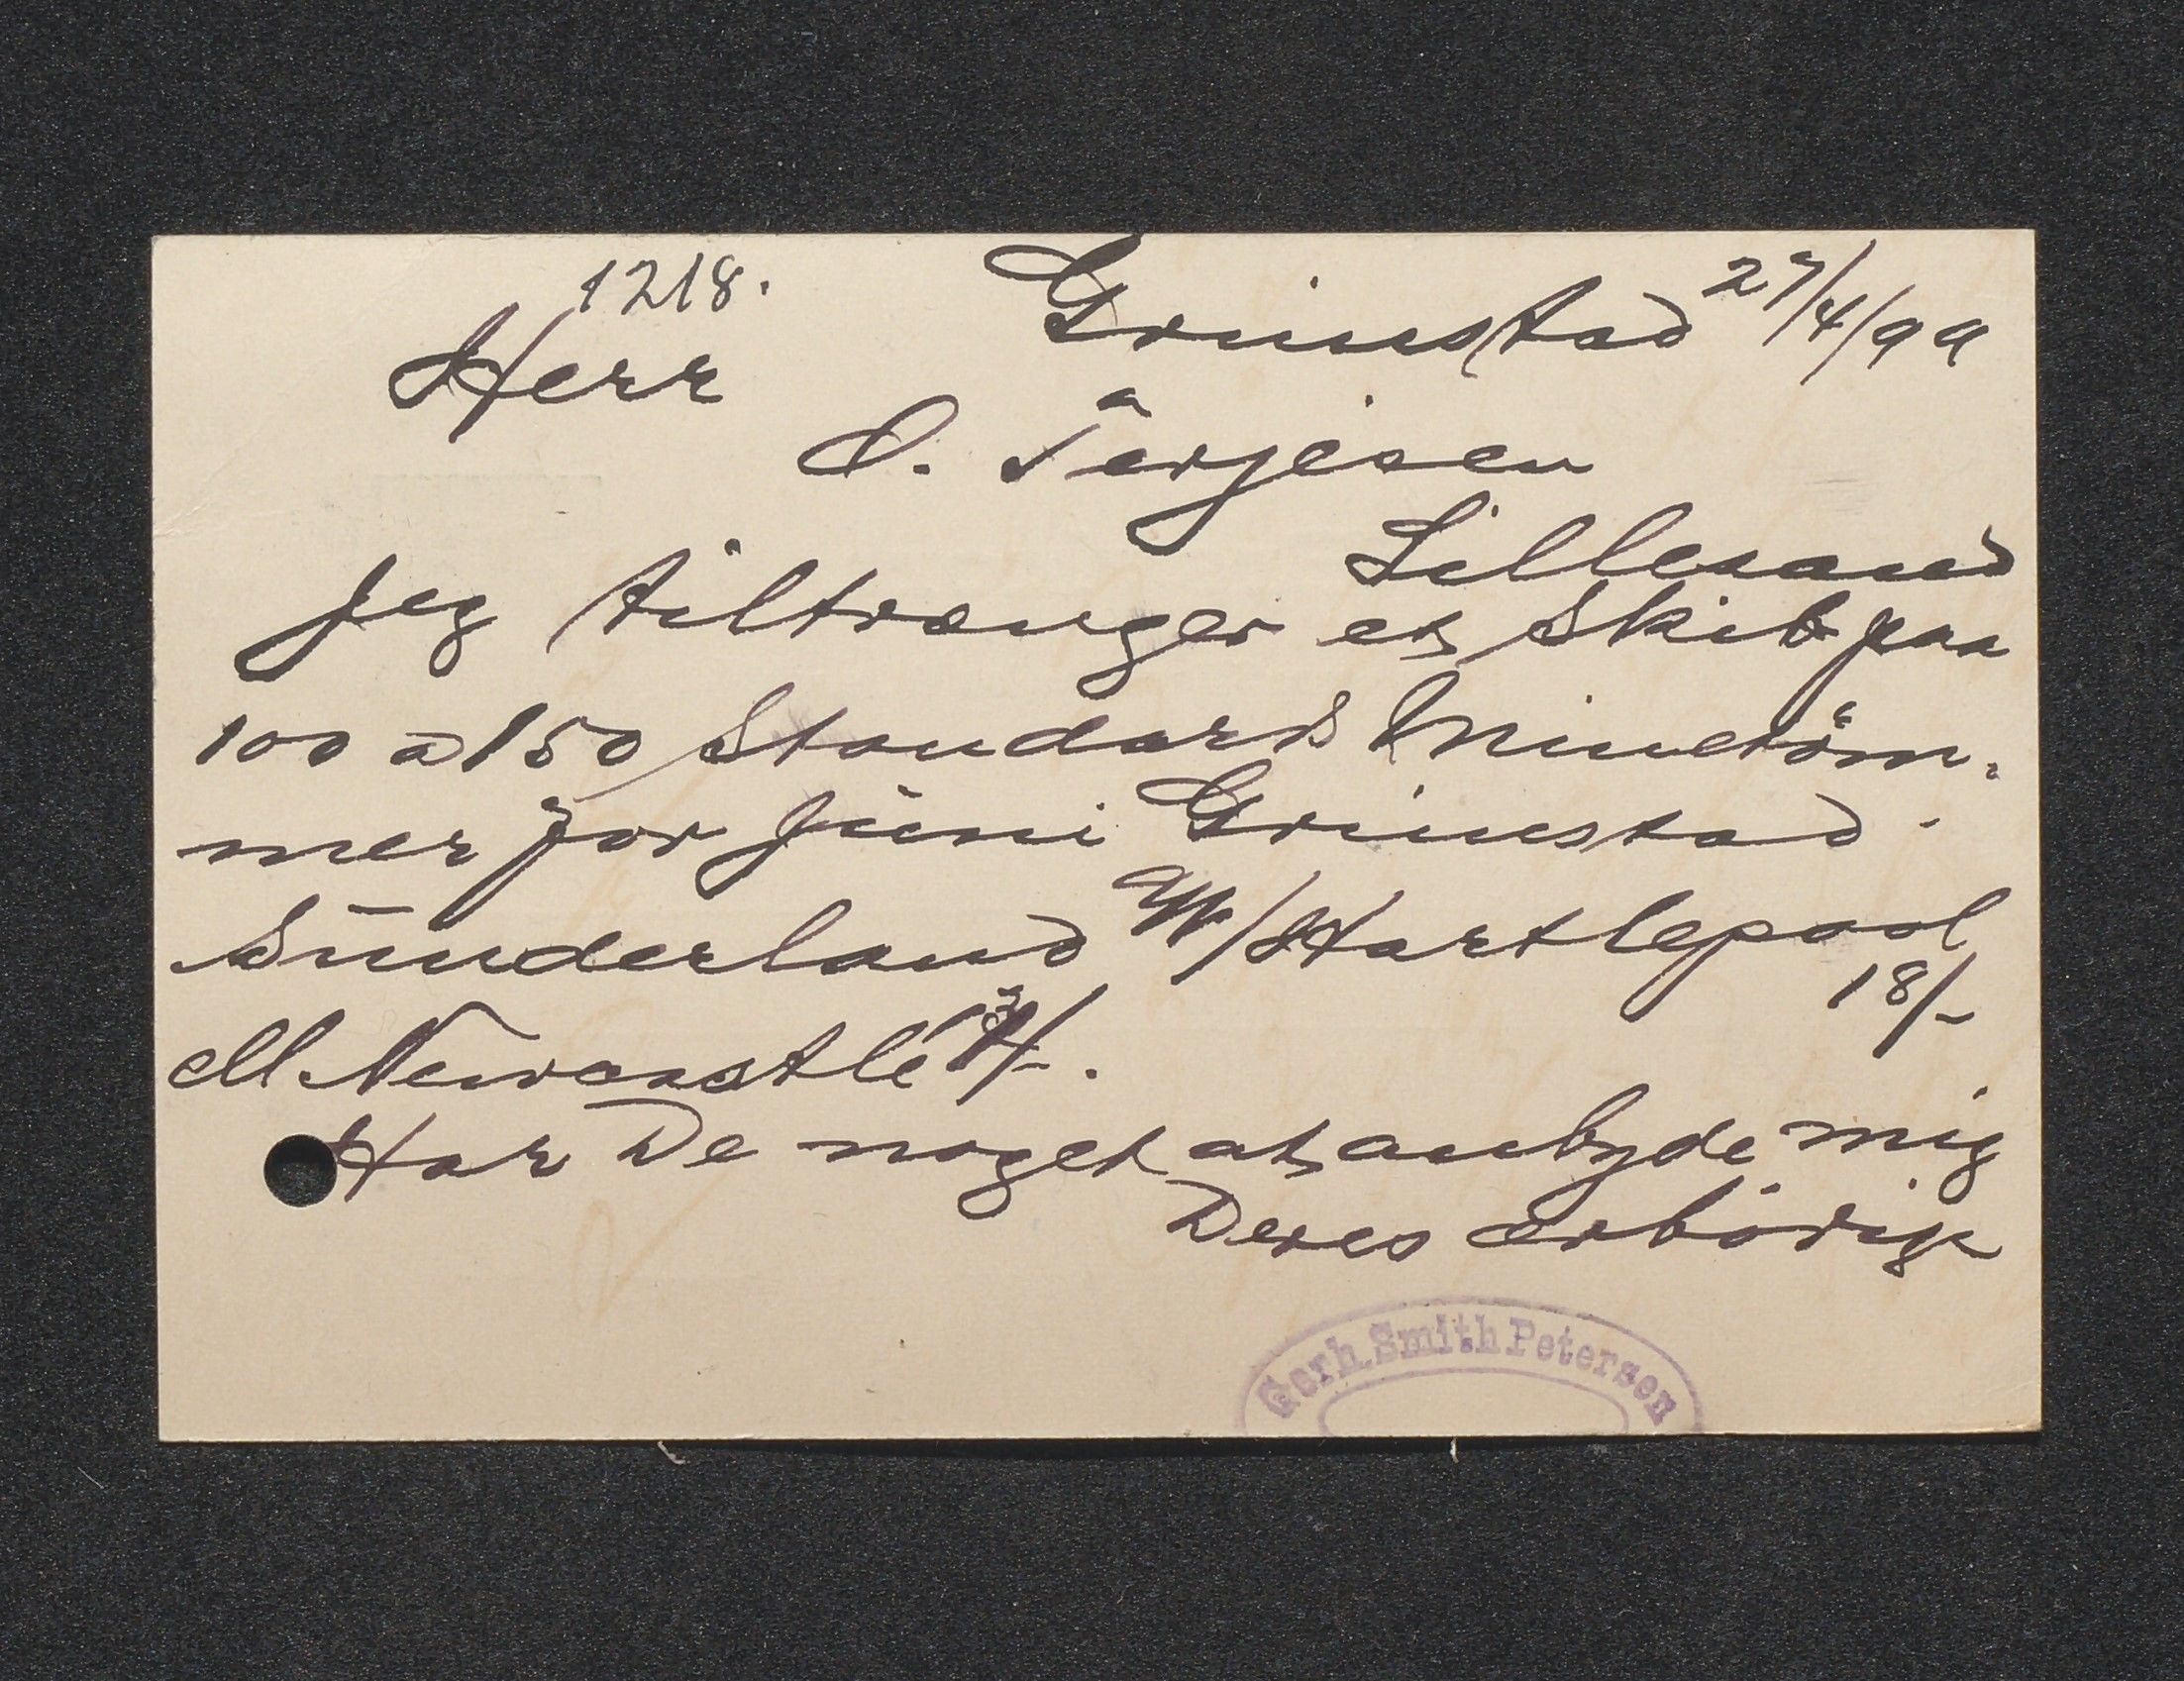 1218.
Grimstad 27/4/99
Herr
O. Terjesen
Lillesand
Jeg tiltrænger et Skib paa
100 a 150 Standards Minetöm-
mer for Juni Grimstad.
Sunderland W/Hartlepool
18/-
Newcastle
Har De noget at anbyde mig
Deres ærbödig
Gerh. Smith Petersen